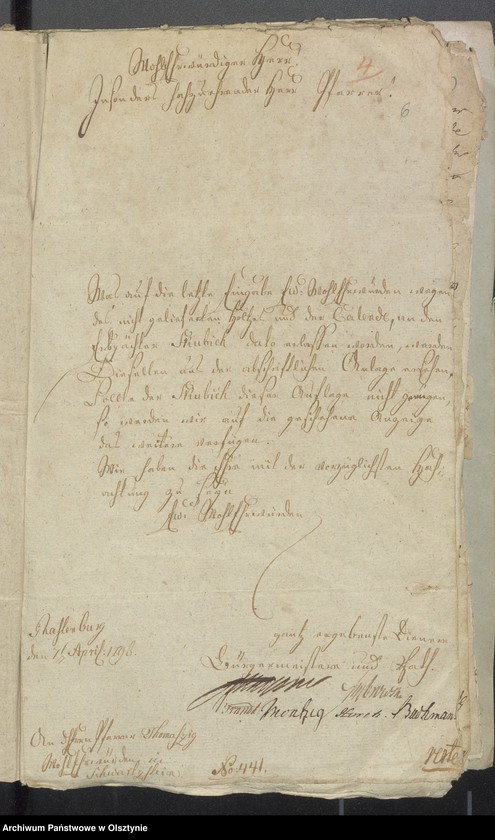 Wohlehrwürdiger Herr.
Insonders hochzuehrender Herr Pfarrer!
4
6
Was auf die letzte Eingabe Ew: Wohlehrwürden wegen
des nicht gelieferten Holtzes und der Calende, an den
Erbpächter Stubich dato erlassen worden, werden
Dieselben aus der abschriftlichen Anlage ersehen,
Sollte der Stubich dieser Auflage nicht genügen,
so werden wir auf die geschehene Anzeige
das weitere verfügen.
Wir haben die Ehre mit der vorzüglichsten Hoch-
achtung zu seyn
Ew: Wohlehrwürden
Rastenburg
den April: 1796.
gantz ergebenste Diener
Bürgermeistere und Rath.
An Herrn Pfarrer Thomaszig
Wohlehrwürden, in
Schwartzstein
No. 441.
verte
Archiwum Państwowe w Olsztynie